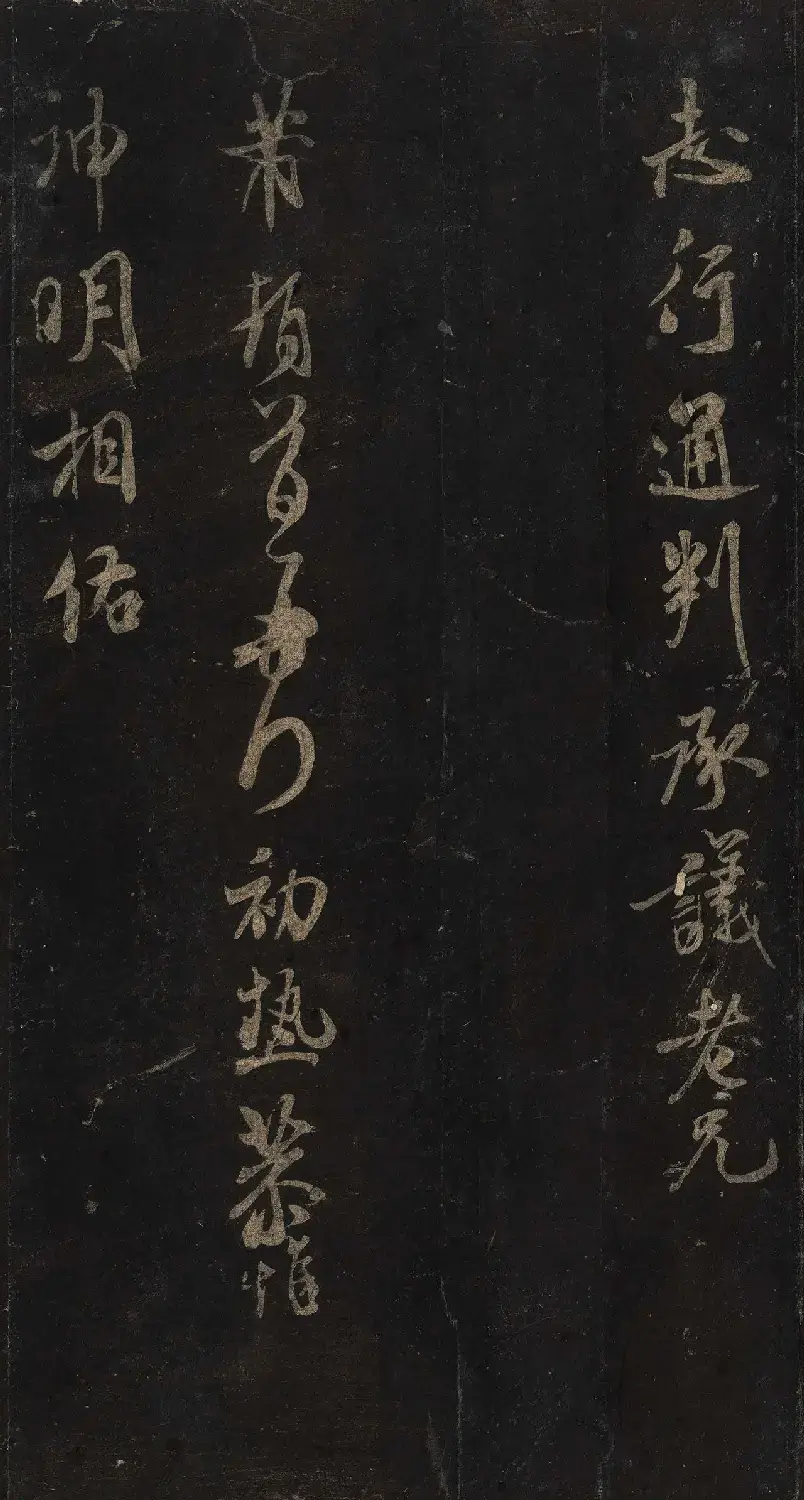 志行通判承議老兄
芾頓首再拜初熱恭惟
神明相佑